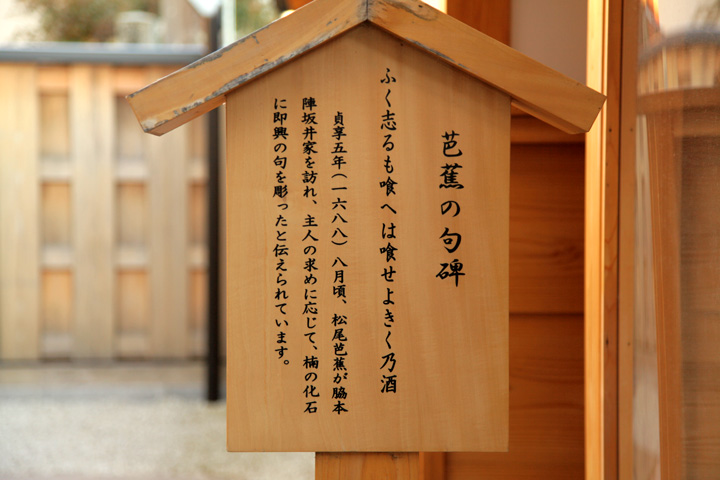 芭蕉の句碑
ふく志るも喰へは喰せよきく乃酒
貞享五年(一六八八)八月頃、松尾芭蕉が脇本
陣坂井家を訪れ、主人の求めに応じて、楠の化石
に即興の句を彫ったと伝えられています。